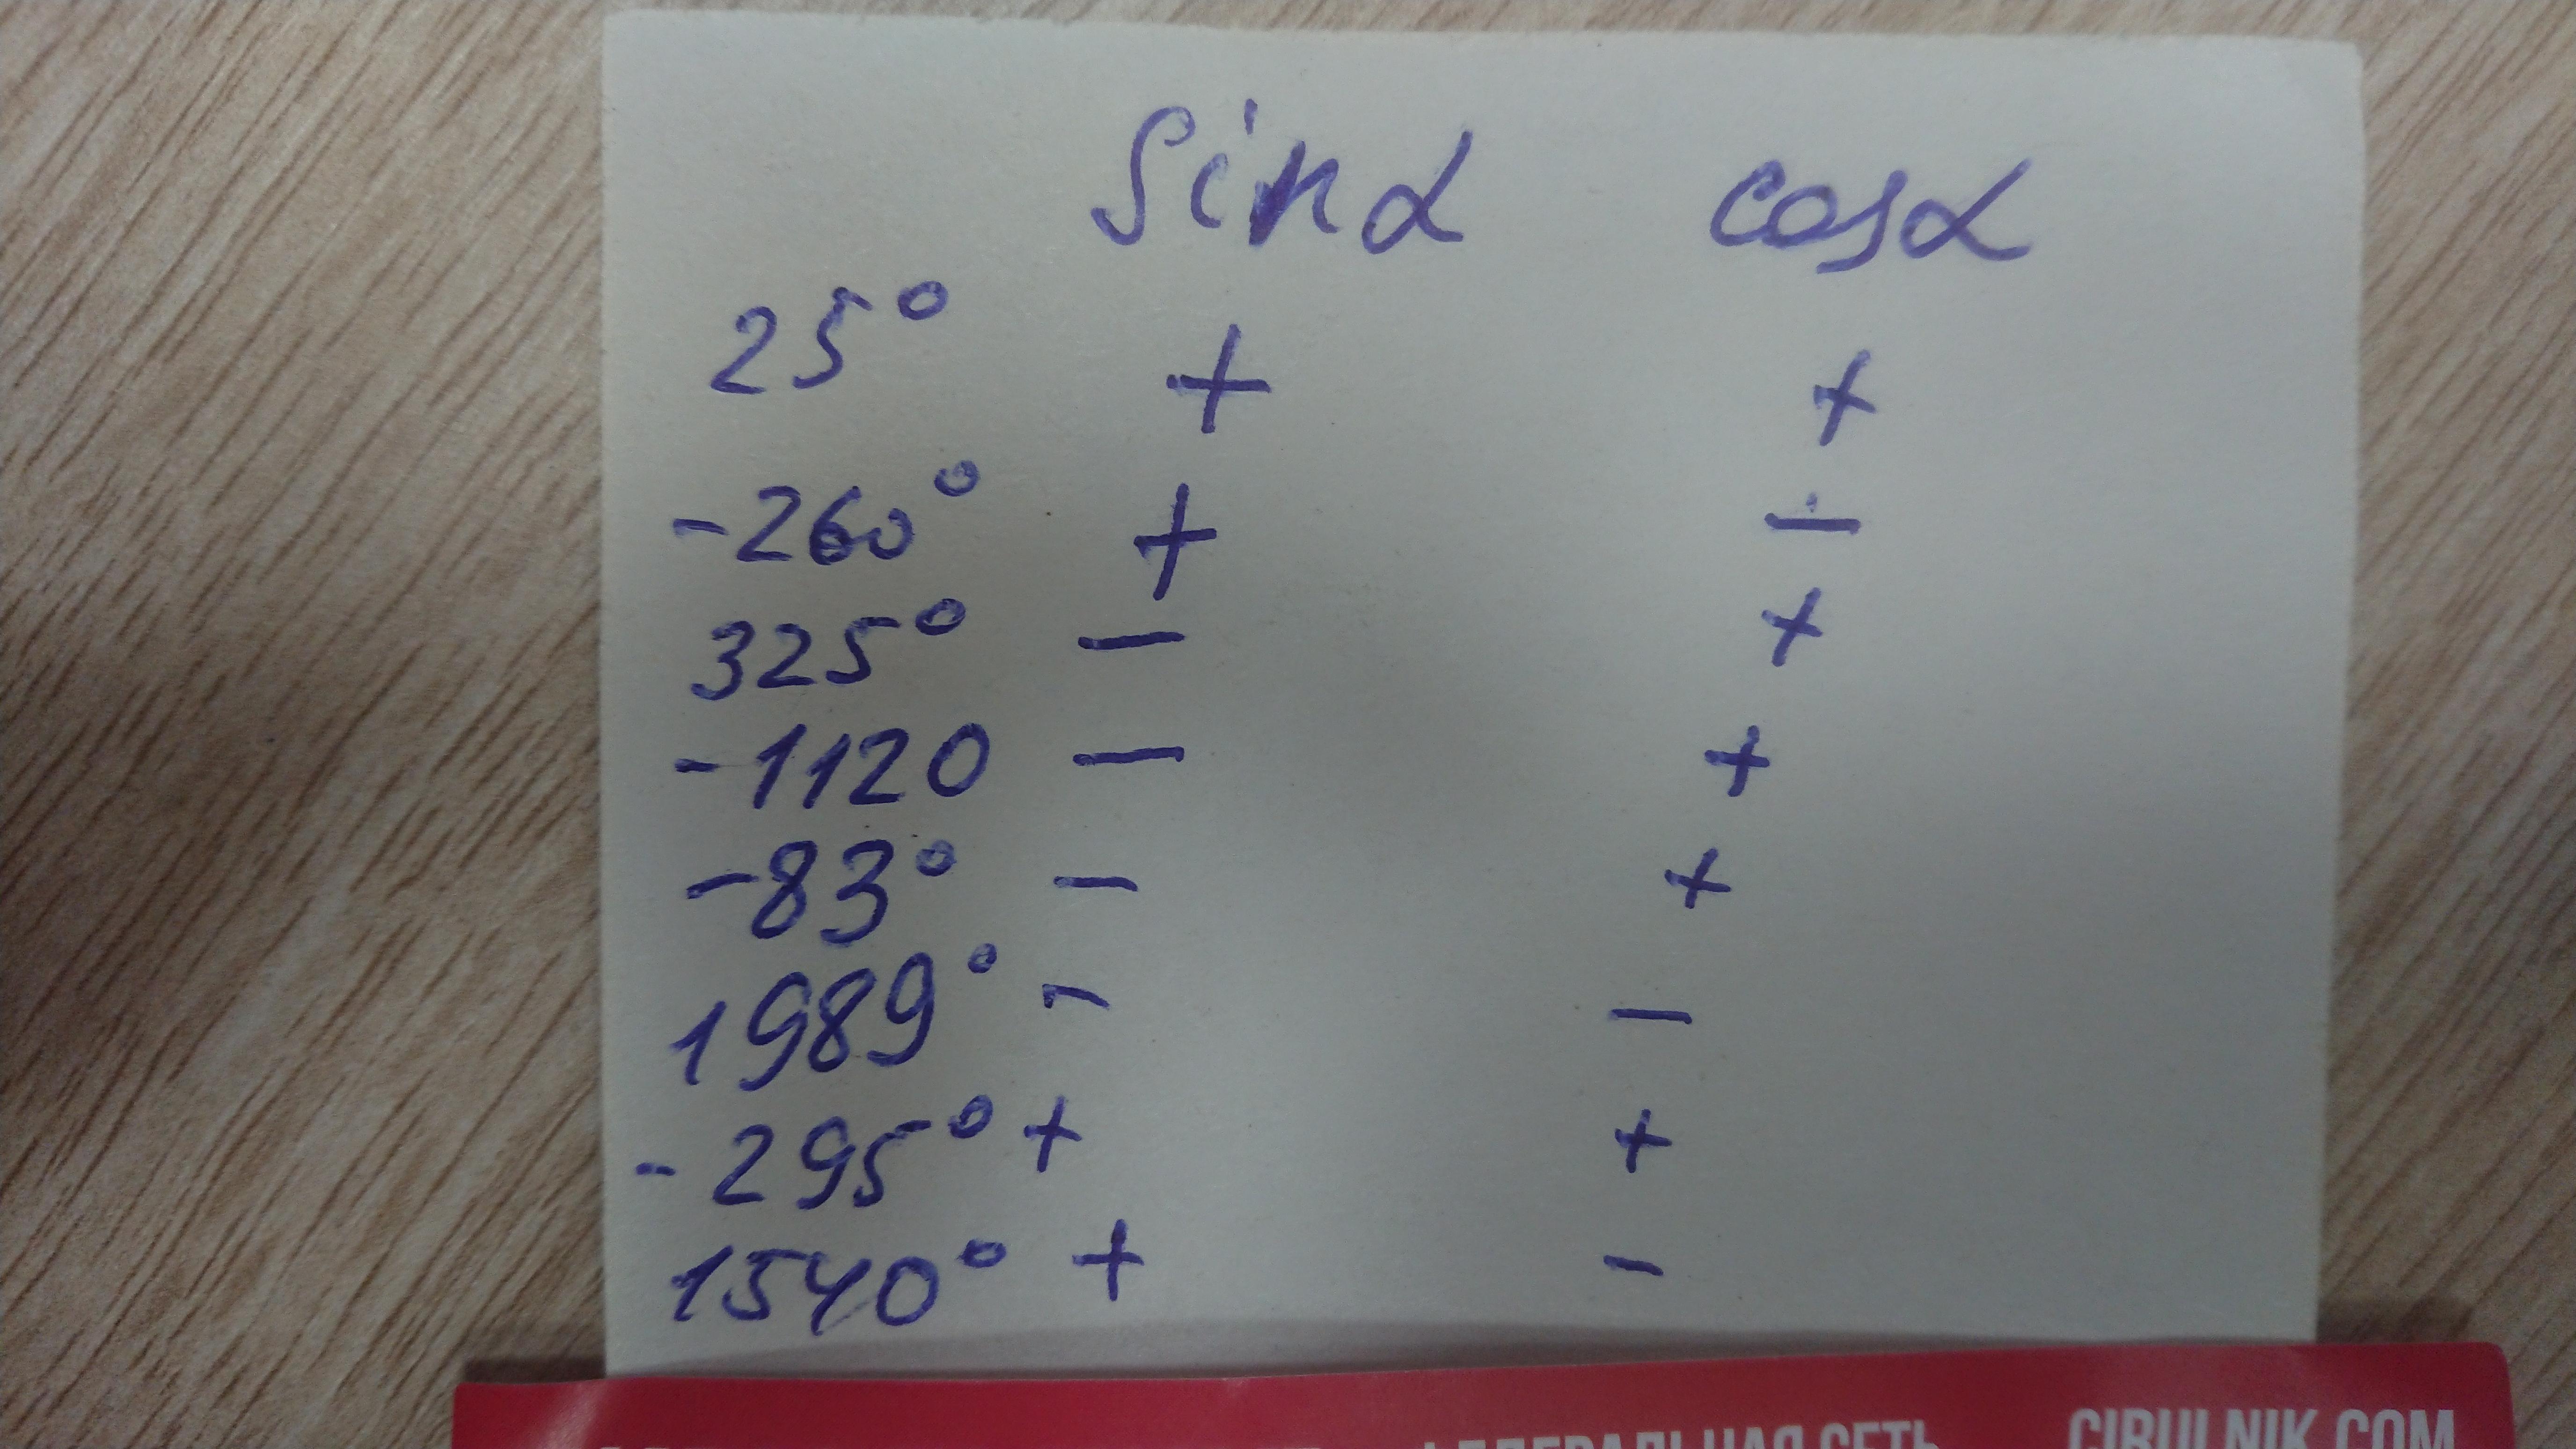 sinα cosα
25° + +
-260° + -
325° - +
-1120 - +
-83° - +
1989° - -
-295° + +
1540° + -
ФЕДЕРАЛЬНАЯ СЕТЬ CIRULNIK.COM